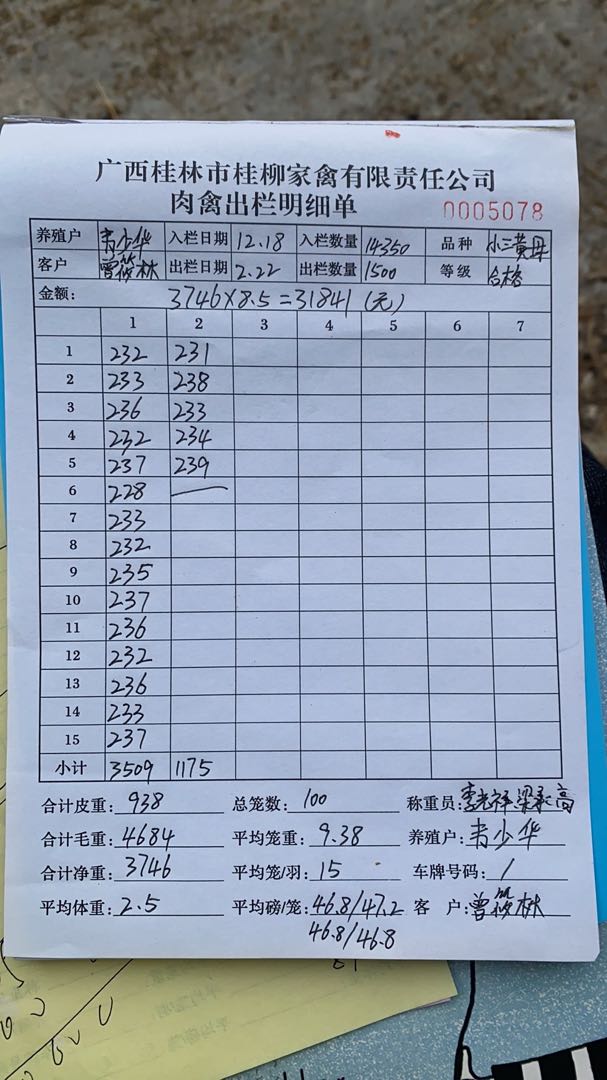 广西桂林市桂柳家禽有限责任公司
肉禽出栏明细单 0005078
养殖户 韦少华 入栏日期 12.18 入栏数量 14350 品种 小三黄母
客户 曾筱林 出栏日期 2.22 出栏数量 1500 等级 合格
金额: 3746×8.5=31841(元)
1 2 3 4 5 6 7
1 232 231
2 233 238
3 236 233
4 232 234
5 237 239
6 228 —
7 233
8 232
9 235
10 237
11 236
12 232
13 236
14 233
15 237
小计 3509 1175
合计皮重: 938 总笼数: 100 称重员: 李光祥 梁承高
合计毛重: 4684 平均笼重: 9.38 养殖户: 韦少华
合计净重: 3746 平均笼/羽: 15 车牌号码: /
平均体重: 2.5 平均磅/笼: 46.8/47.2 客 户: 曾筱林
46.8/46.8